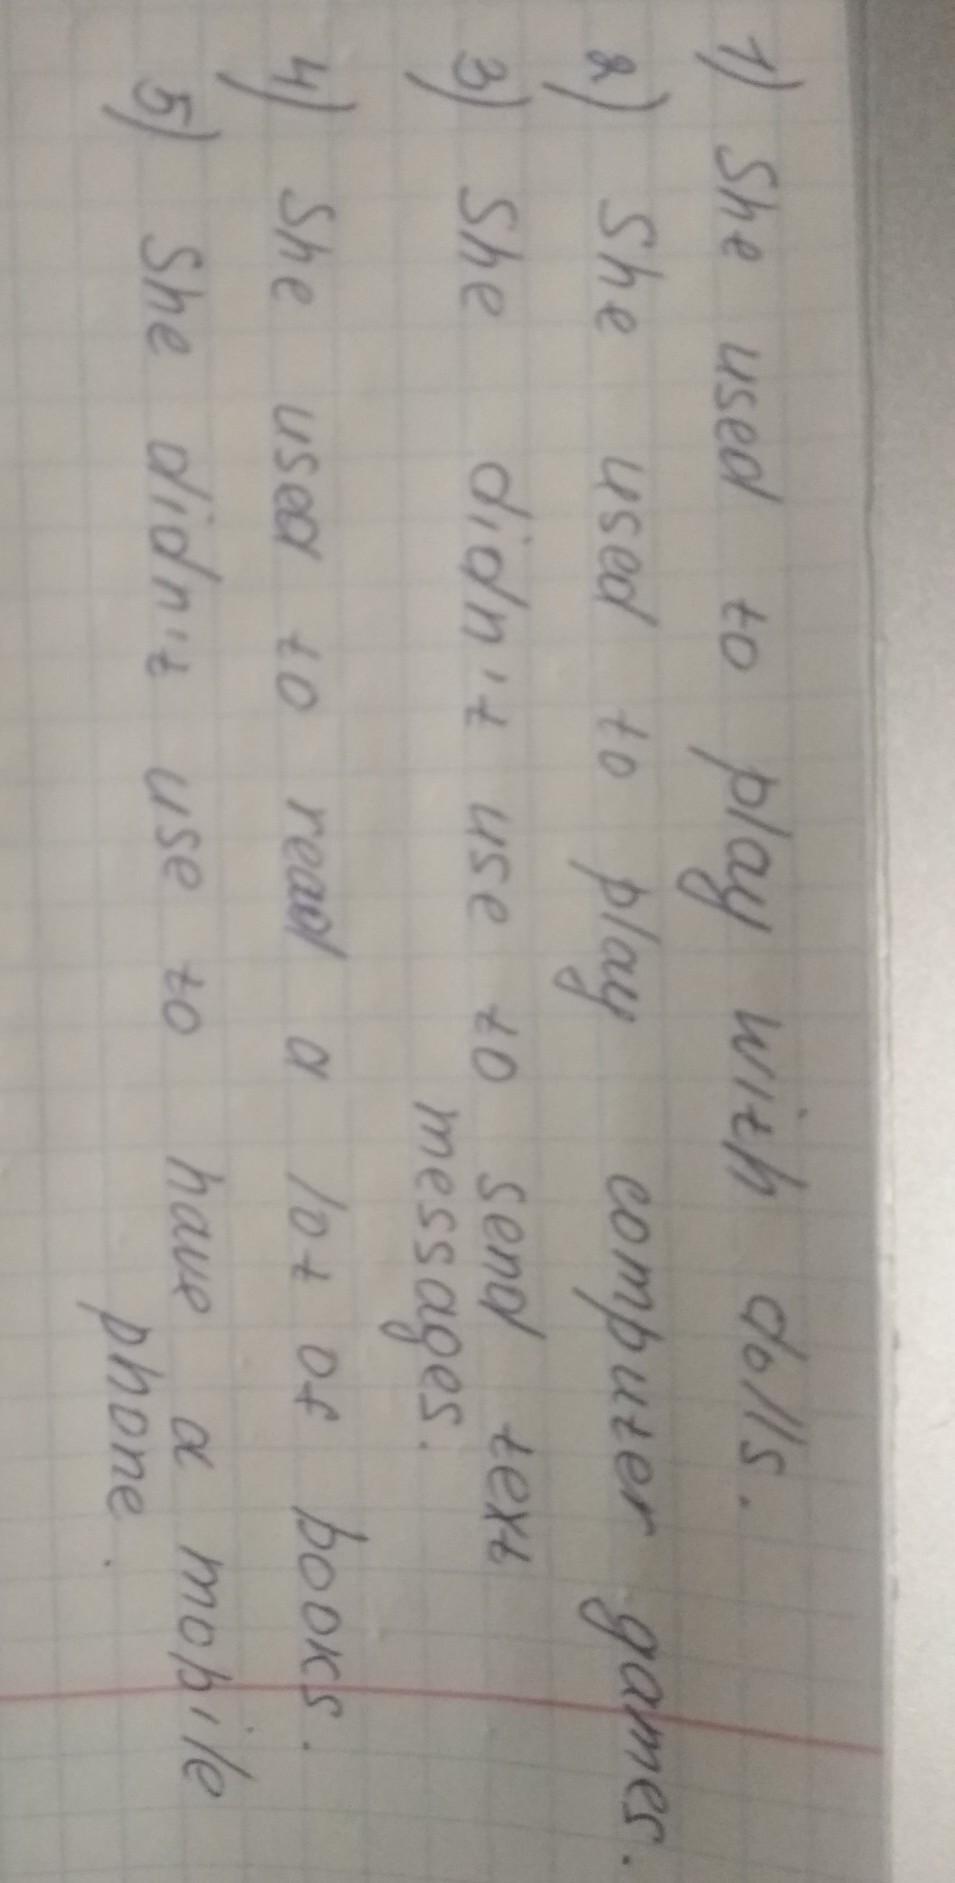 1) She used to play with dolls.
2) She used to play computer games.
3) She didn't use to send text
messages.
4) She used to read a lot of books.
5) She didn't use to have a mobile
phone.